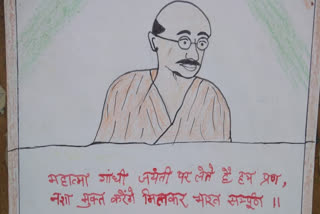 महात्मा गांधी जयंती पर लेते है हम प्रण,
नशा मुक्त करेंगे मिलकर भारत सम्पूर्ण ।।